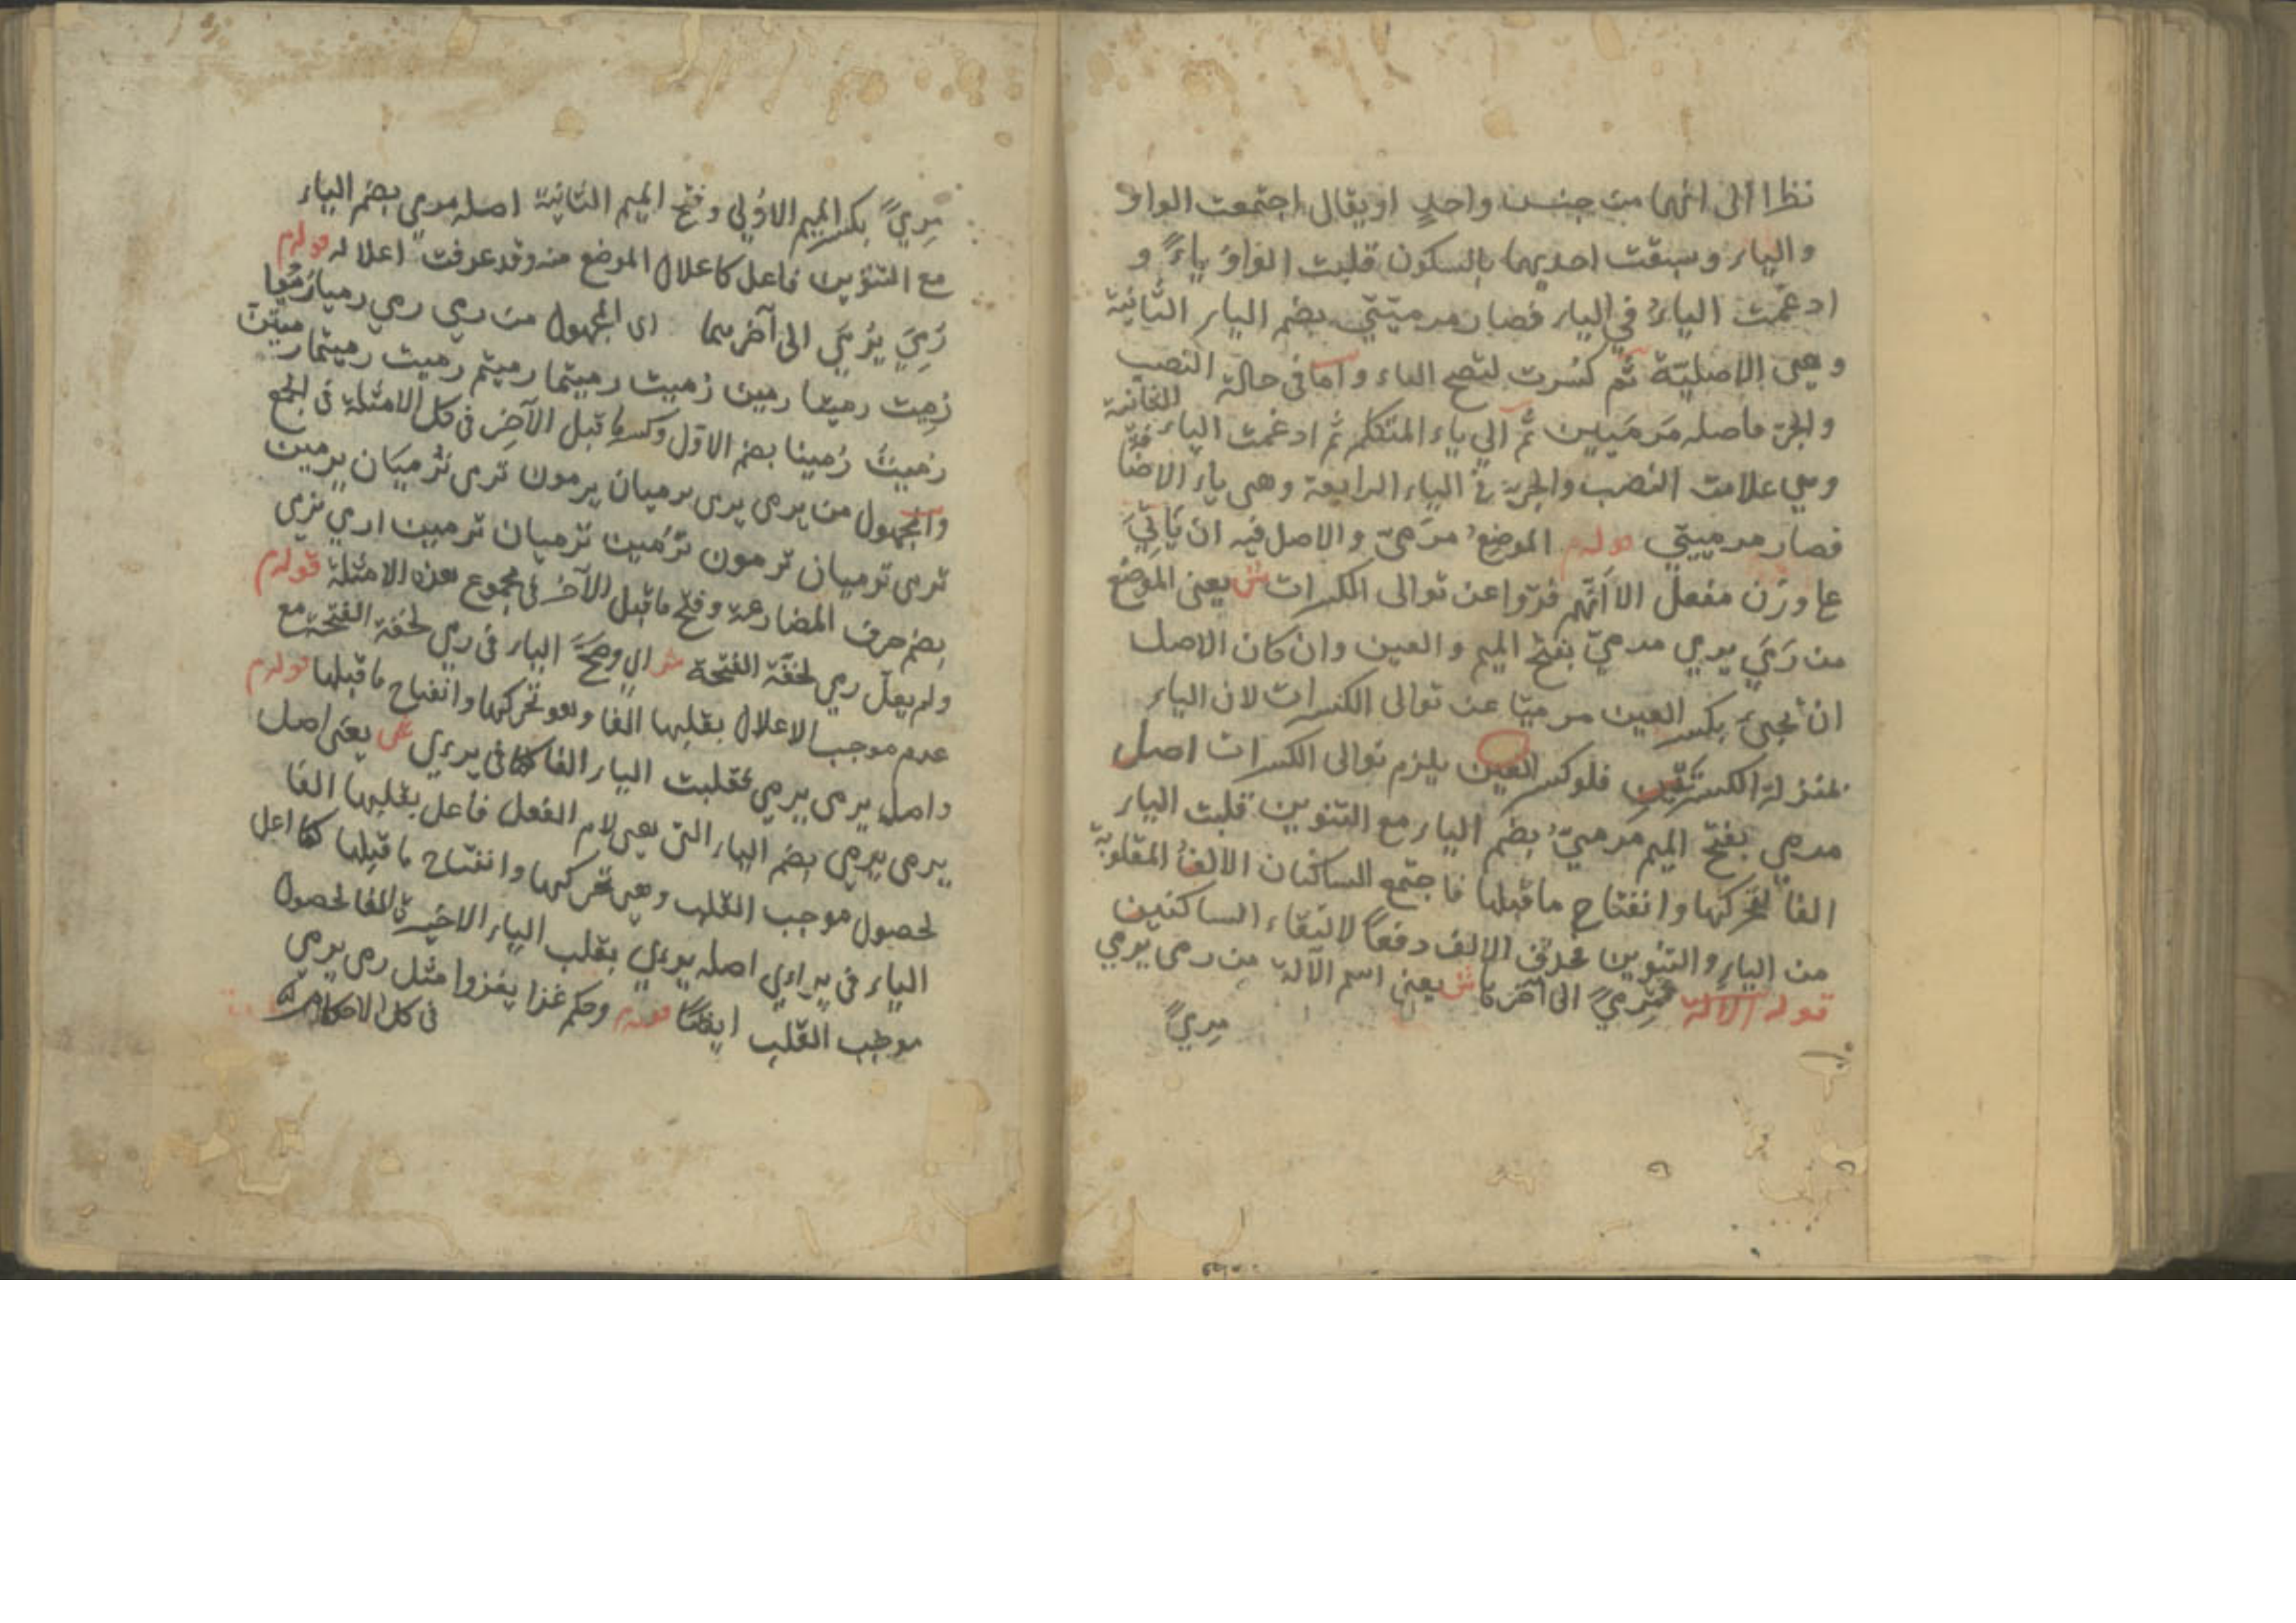 نظرا الى انهما من جنسن واحدٍ او يقال اجتمعت الواو
والياء وسبقت احديهما بالسكون قلبت الواوُ ياءً و
ادغمت الياءُ في الياء فصار مرميّتي بضم الياء الثانية
وهي الاصليّة ثم كسُرت لتصح الياء واما في حالة النصب
والجرّ فاصله مَرمَيين ثم الي ياء المتكلم ثم ادغمت الياء الثانية
وهي علامت النصب والجر في الياء الرابعة وهى ياء الاضافة
فصار مرمييّ قوله م الموضع مرمىً والاصل فيه ان يَاتِيَ
عا وزن مَفعِل الا انّهم فرّوا عن توالى الكسرات ش يعنى الموضع
من رَمَيَ يرمي مرميّ بفتح الميم والعين وان كان الاصل
ان تجيئ بكسر العين مرميّا عن توالى الكسرات لان الياء
بمنزلة الكسرتين فلو كسر العين يلزم توالى الكسرات اصل
مرمي بفتح الميم مرميٌ بضم الياء مع التنوين قلبت الياء
الفا لتحركها وانفتاح ما قبلها فاجتمع الساكنان الالفُ المقلوبة
من الياءِ والتنوين فحذف الالف دفعاً لالتقاء الساكنين
قوله الالة مِرميً الى آخر ما ش يعنى اسم الآلة من رمى يرمي
مِرميً
مِرميً بكسر الميم الاوُلي وفتح الميم الثانية اصله مرمي بضم الياء
مع التنوين فاعل كاعلال الموضع منه وقد عرفت اعلاله قوله م
رُمِيَ يُرْمَي الى آخرهما اى المجهول من رمي رمي رميا رُمُوا
رُمِيت رميتا رمين رُميت رميتما رميتم رميت رميتما رميتن
رُميتُ رُمينا بضم الاوّل وكسر ما قبل الآخِر فى كل الامثلة فى الجمع
والمجهول من يرمى يرمى يرميان يرمون ترمى ترميان يرمين
ترمى ترميان ترمون ترُمين ترميان ترمين ارمي نرمى
بضم حرف المضارعة وفتح ما قبل الآخر فى مجموع هذه الامثلة قوله م
ولم يعلّ رمي لخفّة الفتحة ش اي وصحّ الياء فى رمي لخفة الفتحة مع
عدم موجب الاعلال بقلبها الفا وهو تحركها وانفتاح ما قبلها قوله م
واصل يرمى يرمي فقلبت الياء الفا كما فى يرمي ش يعنى اصل
يرمى يرمي بضم الياء التى هي لام الفعل فاعل بقلبها الفا
لحصول موجب القلب وهي تحركها وانفتاح ما قبلها كما اعل
الياء فى يراى اصله يرءي بقلب الياء الاخيرة الفا لحصول
موجب القلب ايضاً قوله م وحكم غزا يغزوا مثل رمى يرمي
فى كل الاحكام